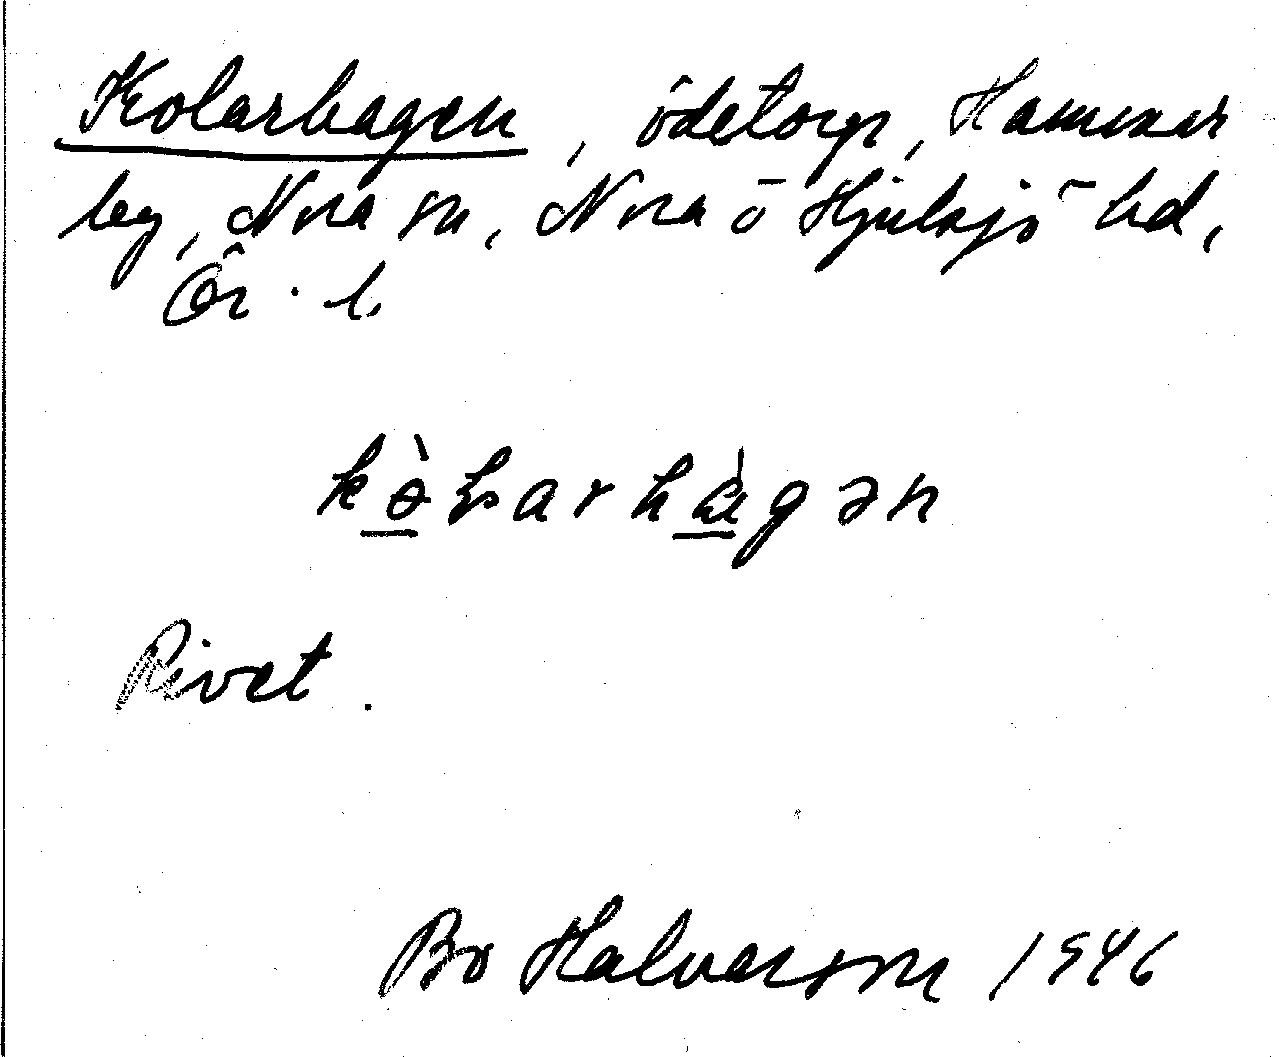 Kolarhagen, ödetorp, Hammar
by, Nora sn, Nora ö Hjulsjö hd,
Ör. l.
kə̀ɭarhàgən
Rivet.
Bo Halvarson 1946